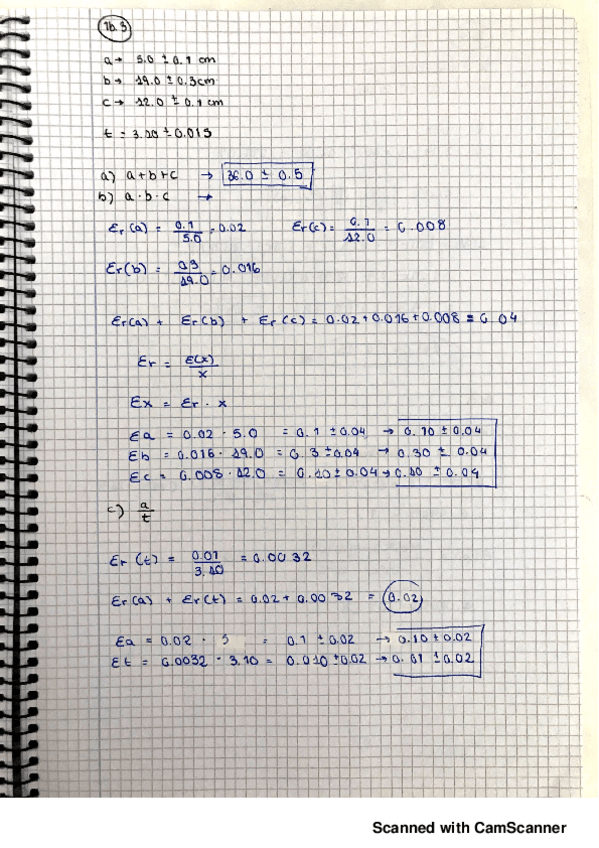 1b.3
a → 5.0 ± 0.1 cm
b → 19.0 ± 0.3cm
c → 12.0 ± 0.1 cm
t = 3.10 ± 0.01s
a) a+b+c → 36.0 ± 0.5
b) a·b·c →
Er(a) = 0.1/5.0 = 0.02 Er(c) = 0.1/12.0 = 0.008
Er(b) = 0.3/19.0 = 0.016
Er(a) + Er(b) + Er(c) = 0.02+0.016+0.008 = 0.04
Er = E(x)/x
Ex = Er · x
Ea = 0.02 · 5.0 = 0.1 ± 0.04 → 0.10 ± 0.04
Eb = 0.016 · 19.0 = 0.3 ± 0.04 → 0.30 ± 0.04
Ec = 0.008 · 12.0 = 0.10 ± 0.04 → 0.10 ± 0.04
c) a/t
Er(t) = 0.01/3.10 = 0.0032
Er(a) + Er(t) = 0.02 + 0.0032 = 0.02
Ea = 0.02 · 5 = 0.1 ± 0.02 → 0.10 ± 0.02
Et = 0.0032 · 3.10 = 0.010 ± 0.02 → 0.01 ± 0.02
Scanned with CamScanner